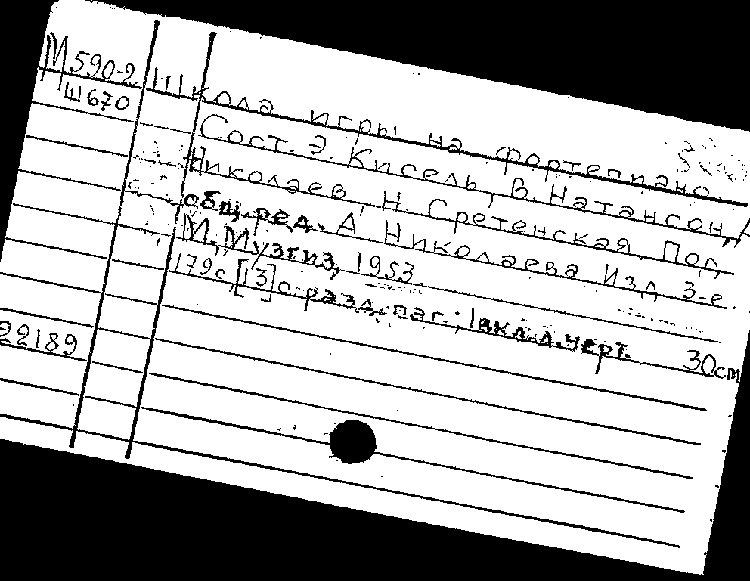 М590-2 Школа игры на фортепиано.
Ш670 Сост. Э. Кисель, В. Натансон, А.
Николаев, Н. Сретенская. Под
общ. ред. А Николаева Изд 3-е.
М., Музгиз, 1953.
179с, [13]с разд. паг.; 1вкл. л. черт. 30см
22189